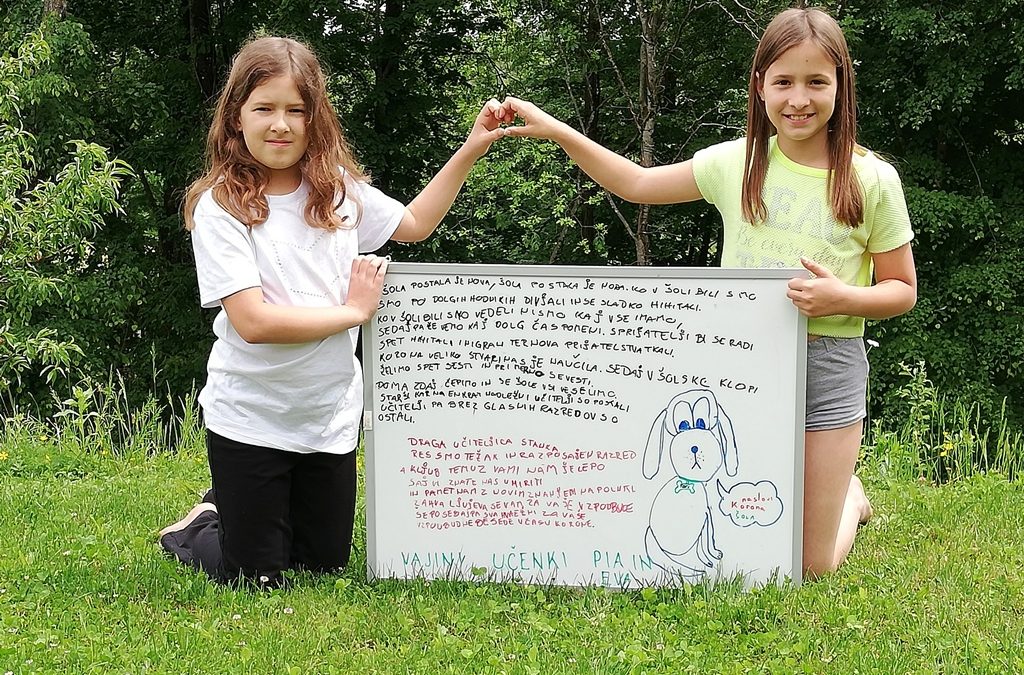 ŠOLA POSTALA JE NOVA, ŠOLA POSTALA JE NORA. KO V ŠOLI BILI SMO
SMO PO DOLGIH HODNIKIH DIVJALI IN SE SLADKO HIHITALI.
KO V ŠOLI BILI SMO VEDELI NISMO KAJ VSE IMAMO,
SEDAJ PA ŽE VEMO KAJ DOLG ČAS POMENI. S PRIJATELJI BI SE RADI
SPET HIHITALI IN IGRALI TER NOVA PRIJATELSTVA TKALI.
KORONA VELIKO STVARI NAS JE NAUČILA. SEDAJ V ŠOLSKE KLOPI
ŽELIMO SPET SESTI IN PRI MIRNO
DOMA ZDAJ ČEPIMO IN SE ŠOLE VSI VESELIMO.
STARŠI KAR NA ENKRAT UČITELJI SO POSTALI
UČITELJI PA BREZ GLASNIH RAZREDOV SO
OSTALI.
DRAGA UČITELJICA STANKA
RES SMO TEŽAK IN RAZPOSAJEN RAZRED
A KLJUB TEMU Z VAMI NAM JE LEPO
SAJ VI ZNATE NAS UMIRITI
IN PAMET NAM Z NOVIM ZNANJEM NAPOLNITI
ZAHVALJUJEVA SE VAM ZA VAŠE VZPODBUDE
ZA VAŠE
BESEDE V ČASU KORONE.
VAJINI UČENKI PIA IN
EVA
K naslovi
Korona
šola